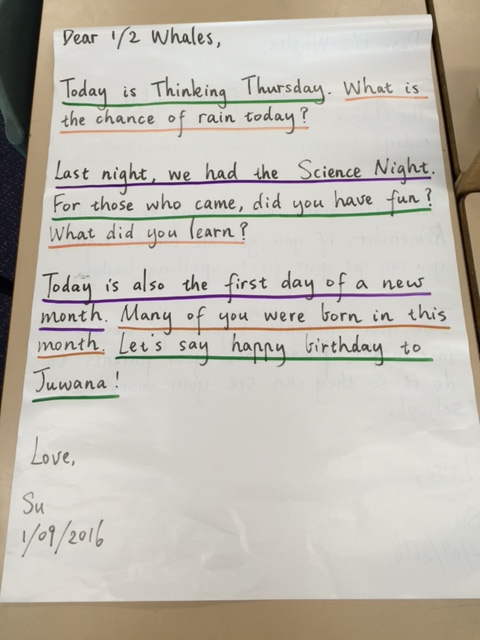 Dear 1/2 Whales,
Today is Thinking Thursday. What is
the chance of rain today?
Last night, we had the Science Night.
For those who came, did you have fun?
What did you learn?
Today is also the first day of a new
month. Many of you were born in this
month. Let's say happy birthday to
Juwana!
Love,
Su
1/09/2016